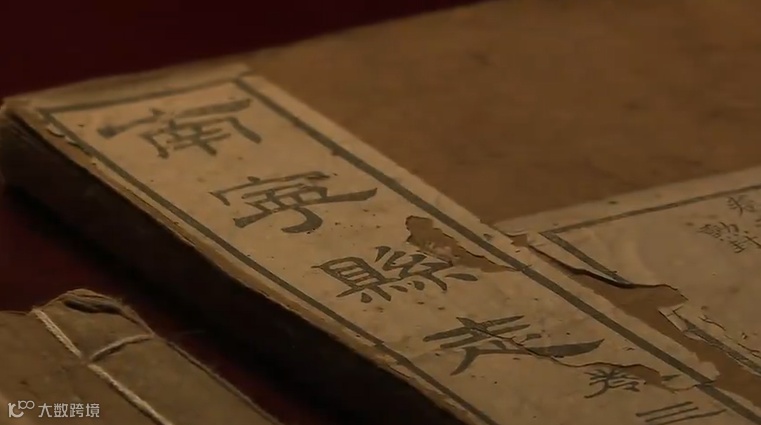 南寧縣志
卷三
大数跨境